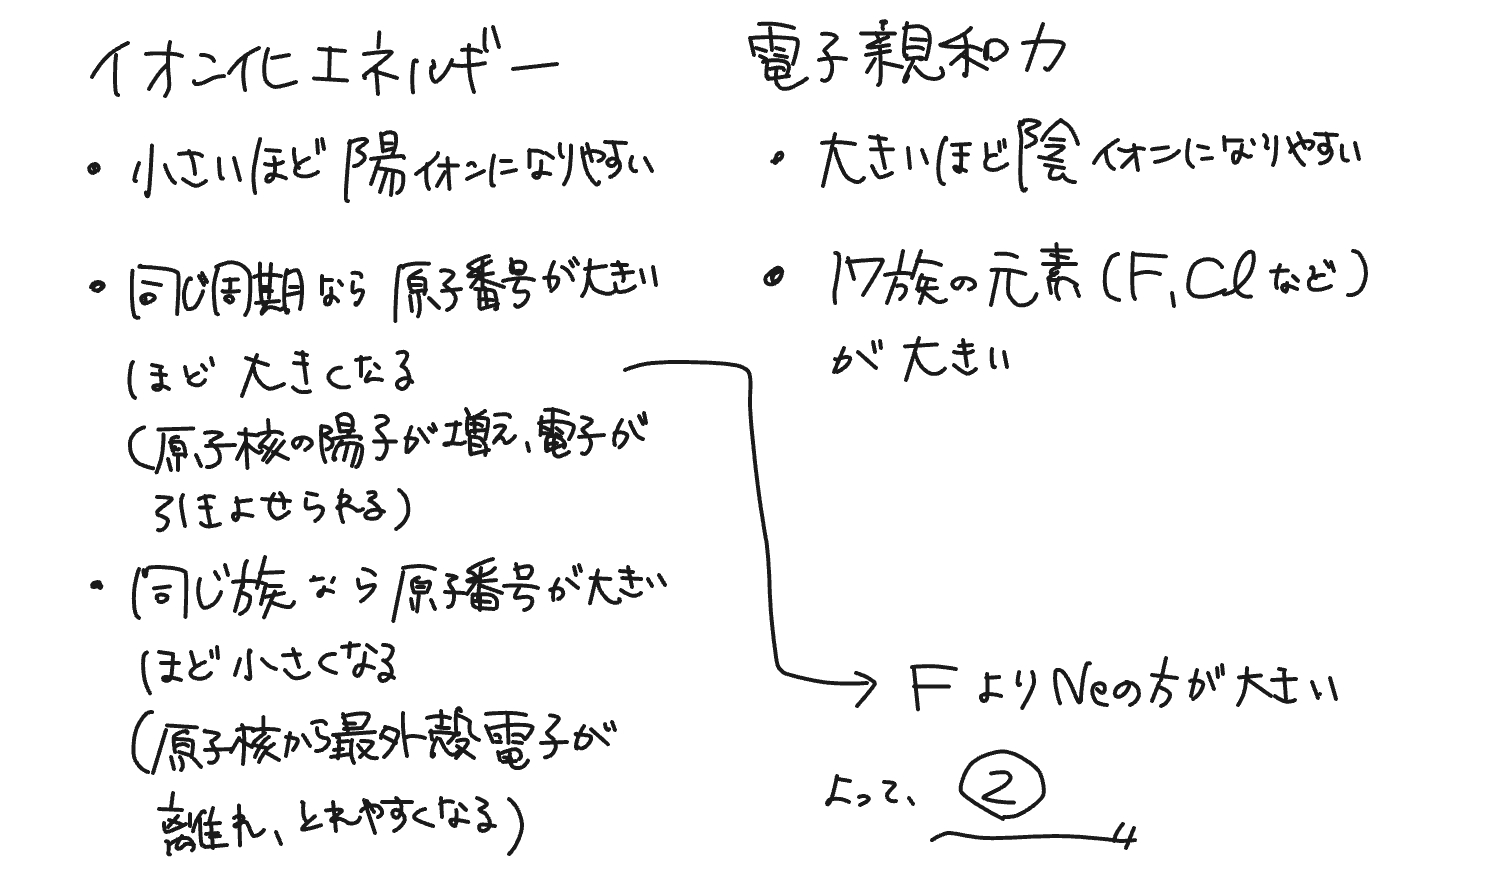 イオン化エネルギー
・小さいほど陽イオンになりやすい
・同じ周期なら原子番号が大きい
ほど大きくなる
(原子核の陽子が増え、電子が
引きよせられる)
・同じ族なら原子番号が大きい
ほど小さくなる
(原子核から最外殻電子が
離れ、とれやすくなる)
電子親和力
・大きいほど陰イオンになりやすい
・17族の元素(F, Clなど)
が大きい
→ FよりNeの方が大きい
よって、②